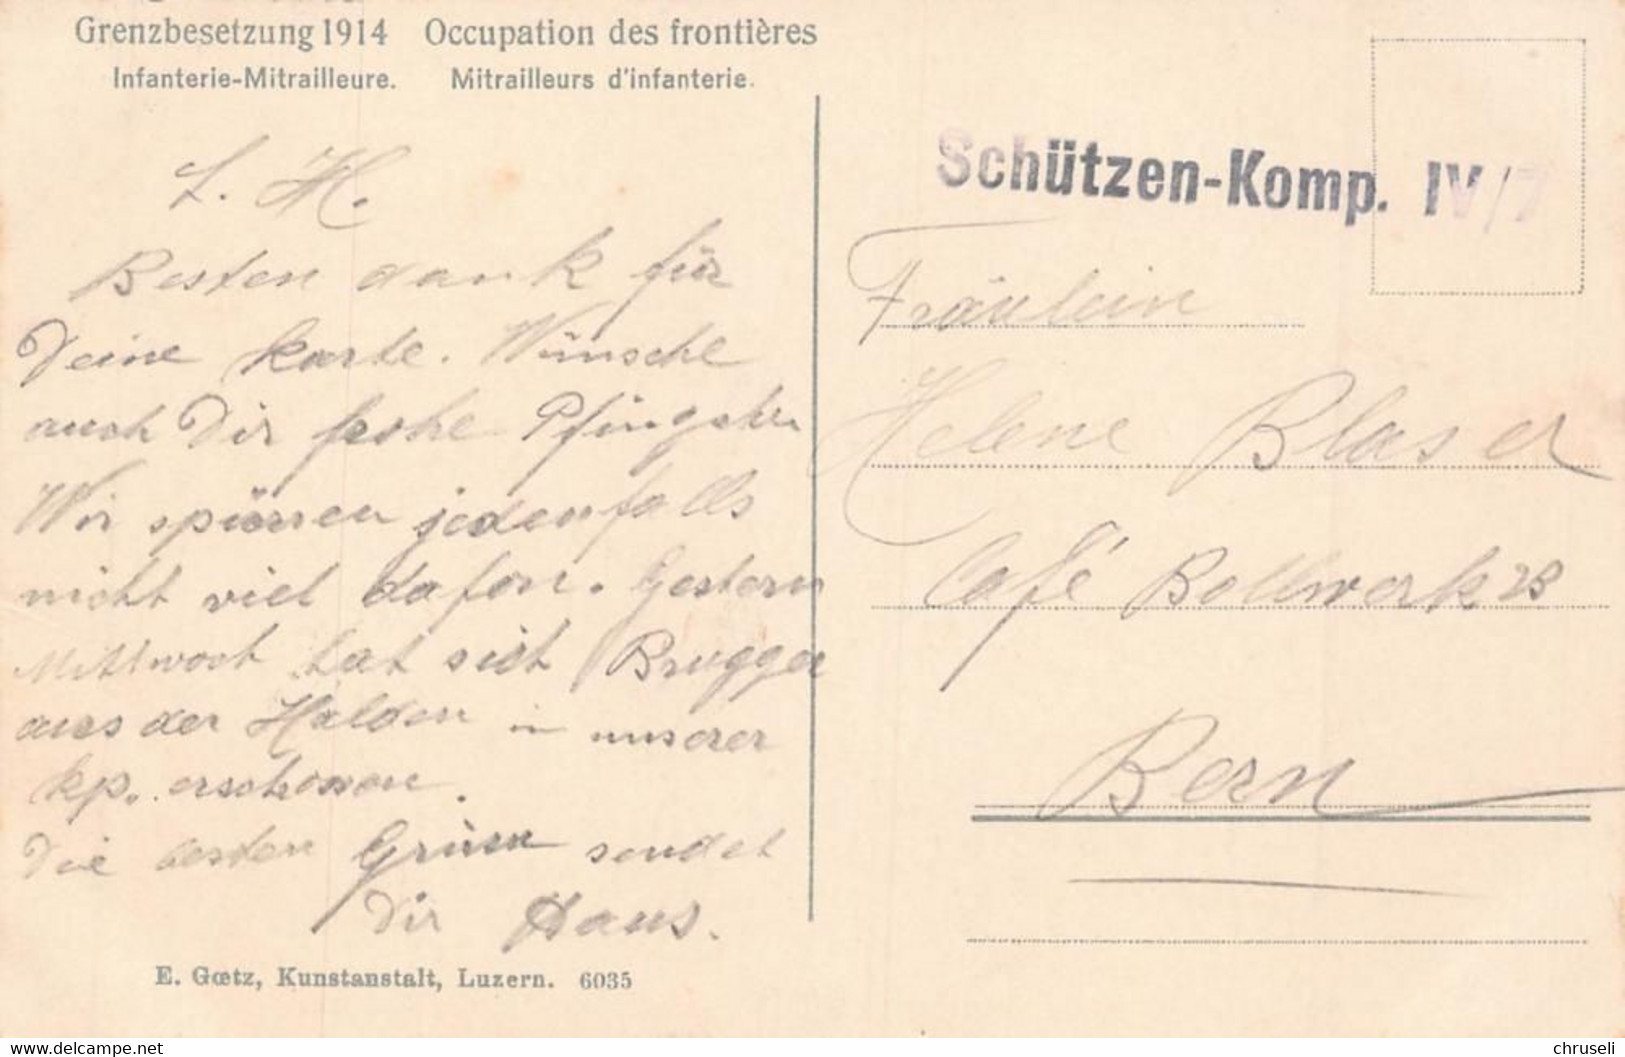 Grenzbesetzung 1914 Occupation des frontières
Infanterie-Mitrailleure. Mitrailleurs d'infanterie.
L. H.
Besten dank für
Deine Karte. Wünsche
auch Dir frohe Pfingsten
Wir spüren jedenfalls
nicht viel dafon. Gestern
Mittwoch hat sich Brugger
aus der Halden in unserer
kp. erschossen.
Die besten Grüsse sendet
Dir Hans.
E. Gœtz, Kunstanstalt, Luzern. 6035
Schützen-Komp. IV/7
Fräulein
Helene Blaser
Café Bollwerk 23
Bern
delcampe.net
chruseli